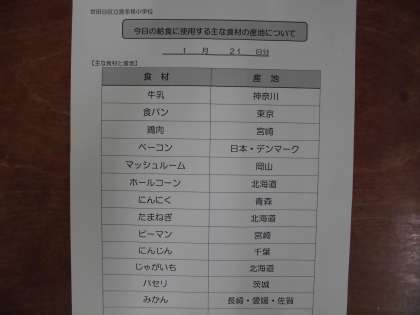 今日の給食に使用する主な食材の産地について
1 月 21 日分
【主な食材と産地】
食 材 産 地
牛乳 神奈川
食パン 東京
鶏肉 宮崎
ベーコン 日本・デンマーク
マッシュルーム 岡山
ホールコーン 北海道
にんにく 青森
たまねぎ 北海道
ピーマン 宮崎
にんじん 千葉
じゃがいも 北海道
パセリ 茨城
みかん 長崎・愛媛・佐賀